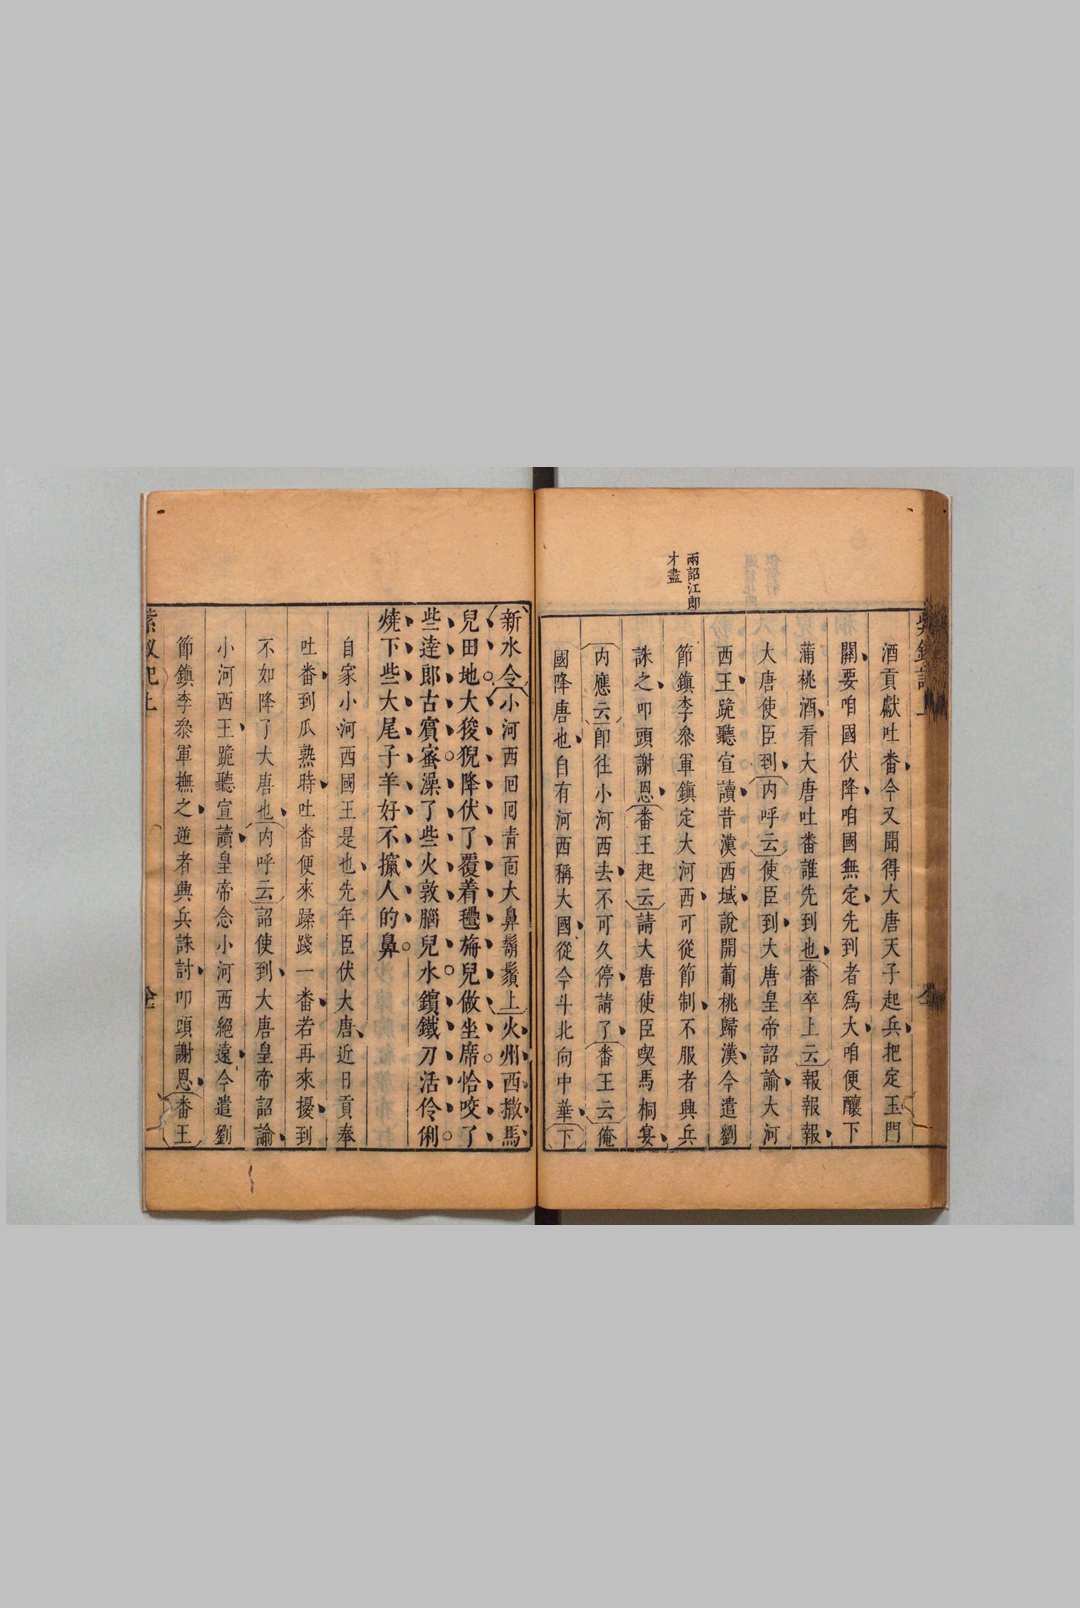 酒貢獻吐番今又聞得大唐天子起兵把定玉門
關要咱國伏降咱國無定先到者爲大咱便釀下
蒲桃酒看大唐吐番誰先到也番卒上云報報報
大唐使臣到內呼云使臣到大唐皇帝詔諭大河
西王跪聽宣讀昔漢西域說開葡桃歸漢今遣劉
節鎮李叅軍鎮定大河西可從節制不服者興兵
誅之叩頭謝恩番王起云請大唐使臣喫馬桐宴
內應云卽往小河西去不可久停請了番王云俺
國降唐也自有河西稱大國從今斗北向中華下
兩詔江郎
才盡
新水令小河西回回靑面大鼻鬍鬚上火州西撒馬
兒田地大狻猊降伏了覆着氆㲪兒做坐席恰咬了
些達郎古賓蜜澡了些火敦腦兒水鑌鐵刀活伶俐
燒下些大尾子羊好不攛人的鼻
自家小河西國王是也先年臣伏大唐近日貢奉
吐番到瓜熟時吐番便來蹂踐一番若再來擾到
不如降了大唐也內呼云詔使到大唐皇帝詔諭
小河西王跪聽宣讀皇帝念小河西絕遠今遣劉
節鎮李叅軍撫之逆者興兵誅討叩頭謝恩番王